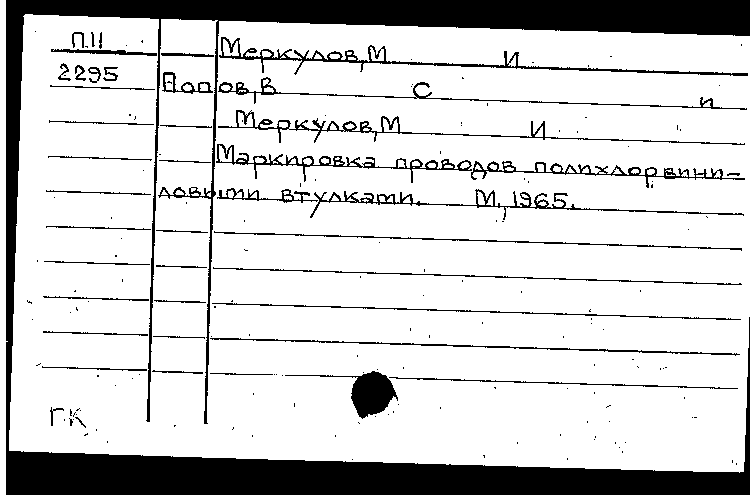 П.11 Меркулов, М И
2295 Попов, В С и
Меркулов, М И
Маркировка проводов полихлорвини-
ловыми втулками. М., 1965.
Г.К